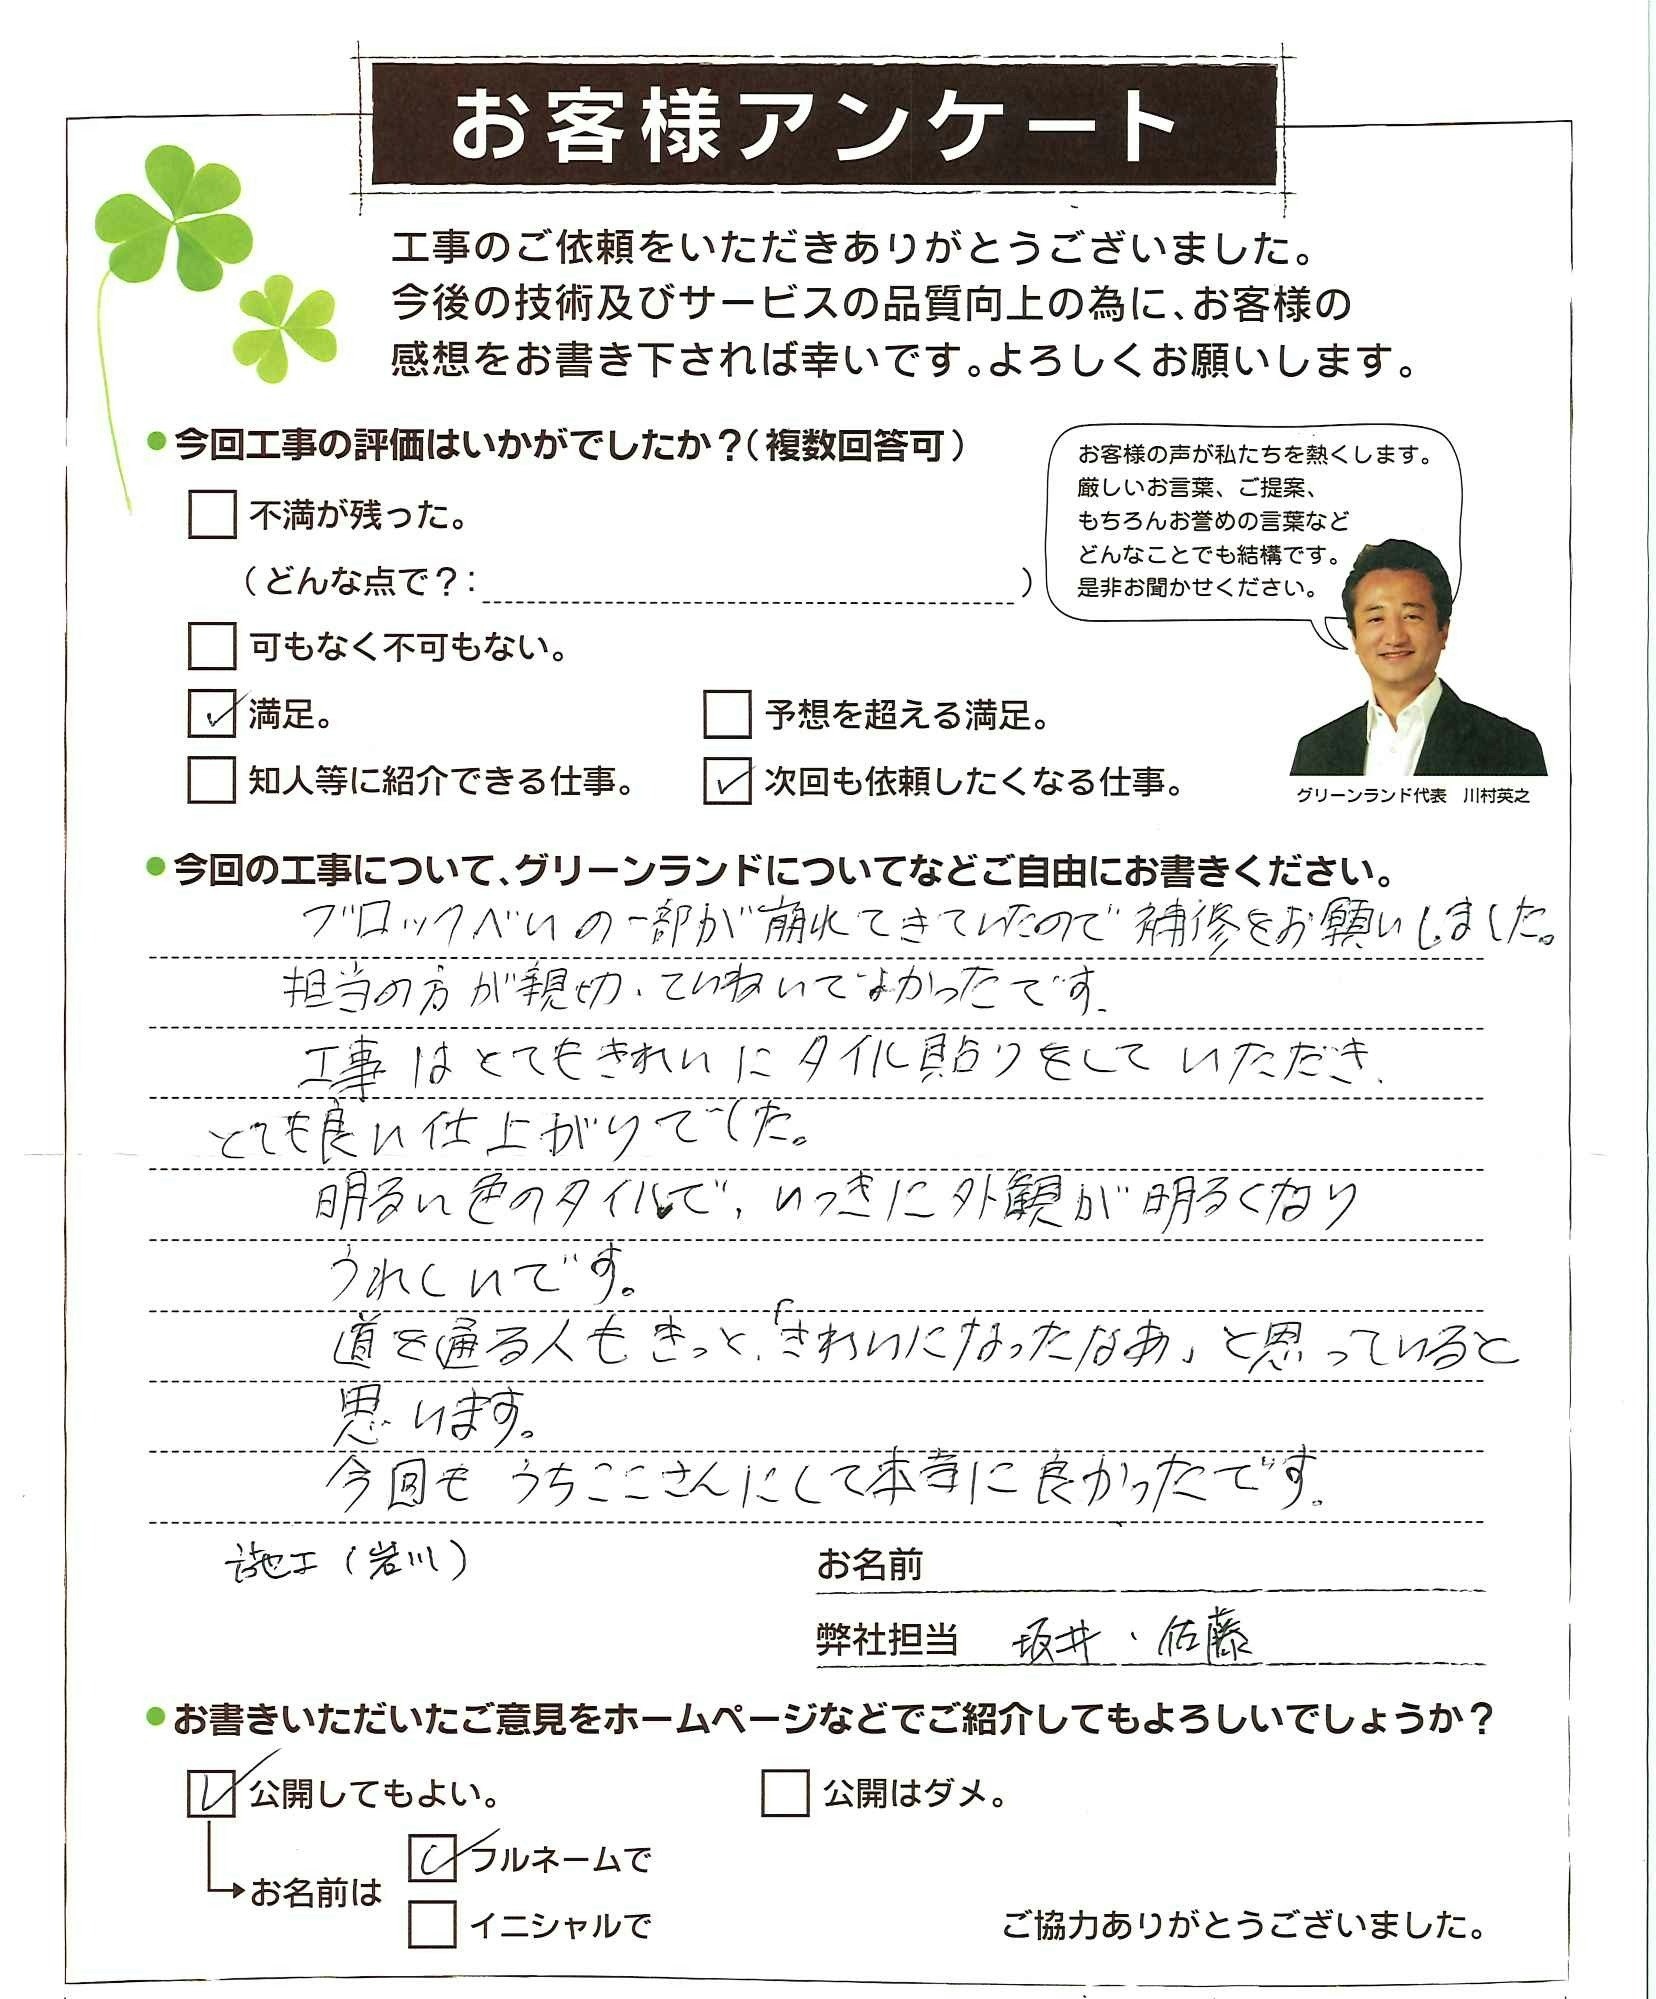 お客様アンケート
工事のご依頼をいただきありがとうございました。
今後の技術及びサービスの品質向上の為に、お客様の
感想をお書き下されば幸いです。よろしくお願いします。
●今回工事の評価はいかがでしたか?(複数回答可)
お客様の声が私たちを熱くします。
厳しいお言葉、ご提案、
もちろんお誉めの言葉など
どんなことでも結構です。
是非お聞かせください。
グリーンランド代表 川村英之
不満が残った。
(どんな点で?: )
可もなく不可もない。
満足。
予想を超える満足。
知人等に紹介できる仕事。
次回も依頼したくなる仕事。
●今回の工事について、グリーンランドについてなどご自由にお書きください。
ブロックべいの一部が崩れてきていたので補修をお願いしました。
担当の方が親切、ていねいでよかったです。
工事はとてもきれいにタイル貼りをしていただき、
とても良い仕上がりでした。
明るい色のタイルで、いっきに外観が明るくなり
うれしいです。
道を通る人もきっと、「きれいになったなあ」と思っていると
思います。
今回もうちここさんにして本当に良かったです。
施工(岩川)
お名前
弊社担当 坂井、佐藤
●お書きいただいたご意見をホームページなどでご紹介してもよろしいでしょうか?
公開してもよい。
公開はダメ。
お名前は
フルネームで
イニシャルで
ご協力ありがとうございました。